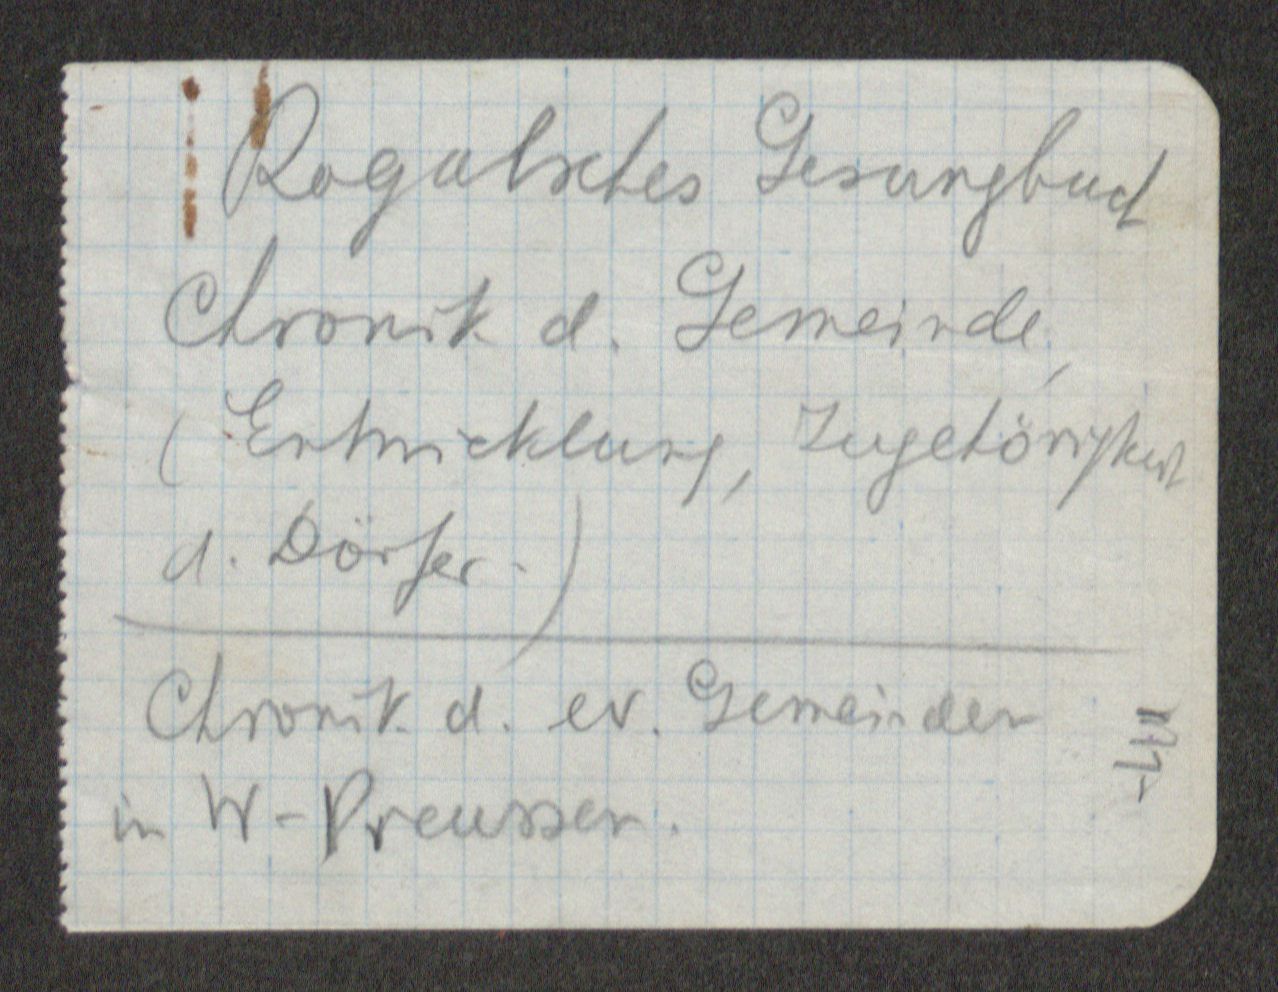 Rogalsches Gesangbuch
Chronik d. Gemeinde,
(Entwicklung, Zugehörigkeit
d. Dörfer.)
Chronik d. ev. Gemeinden
in W-Preussen.